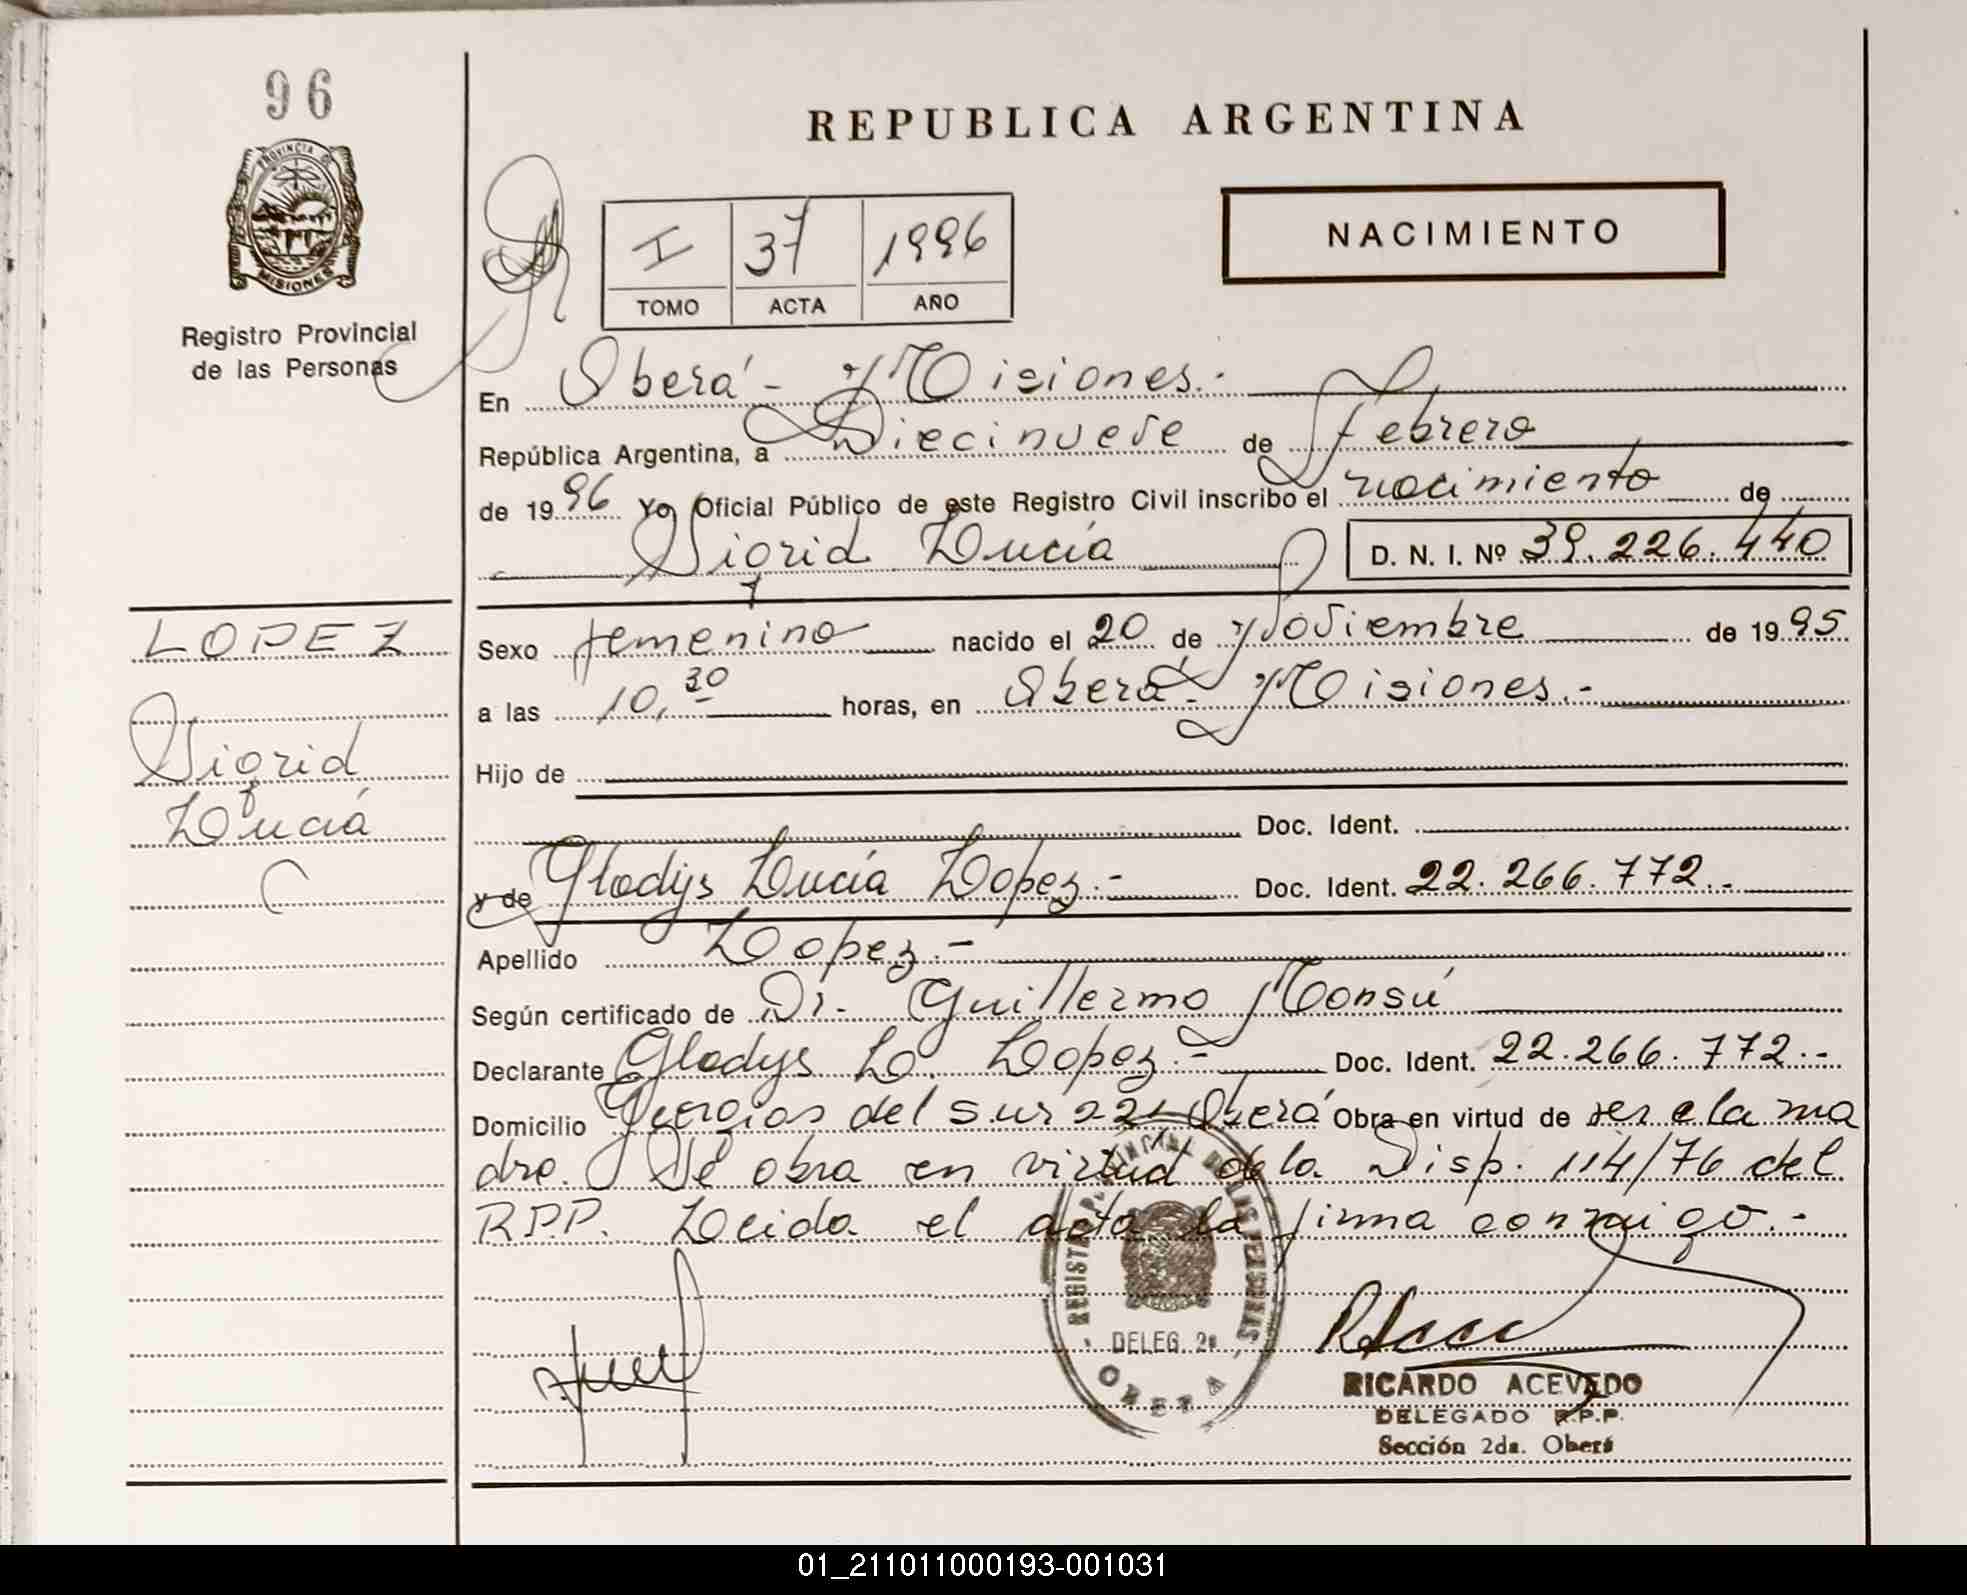 96
PROVINCIA DE
MISIONES
Registro Provincial
de las Personas
REPUBLICA ARGENTINA
I 37 1996
TOMO ACTA AÑO
NACIMIENTO
En Oberá - Misiones.-
República Argentina, a Diecinueve de Febrero
de 1996 Yo Oficial Público de este Registro Civil inscribo el nacimiento de
Sigrid Lucía D. N. I. Nº 39.226.440
LOPEZ
Sigrid
Lucía
Sexo femenino nacido el 20 de Noviembre de 1995
a las 10,30 horas, en Oberá - Misiones.-
Hijo de
Doc. Ident.
y de Gladys Lucía Lopez.- Doc. Ident. 22.266.772.-
Apellido Lopez.-
Según certificado de Dr. Guillermo Monsú
Declarante Gladys L. Lopez.- Doc. Ident. 22.266.772.-
Domicilio Georgias del sur 221 Oberá Obra en virtud de ser ela ma
dre. Se obra en virtud de la Disp. 114/76 del
R.P.P. Leida el acta la firma conmigo.-
REGISTRO PROVINCIAL DE LAS PERSONAS
DELEG. 2a
OBERA
RICARDO ACEVEDO
DELEGADO R.P.P.
Sección 2da. Oberá
01_211011000193-001031